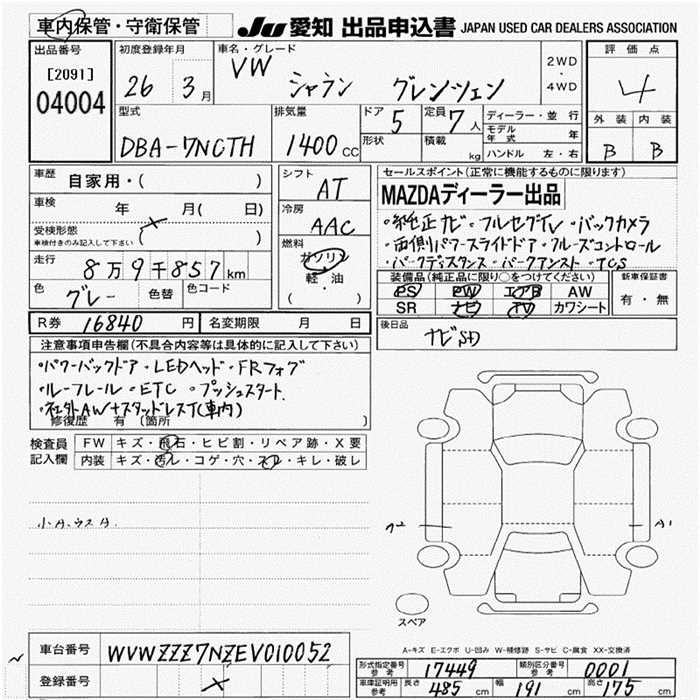 車内保管・守衛保管 JU 愛知 出品申込書 JAPAN USED CAR DEALERS ASSOCIATION
出品番号 初度登録年月 車名・グレード 評価点
[2091] 04004 26 3月 VW シャラン グレンツェン 2WD・4WD 4
型式 排気量 ドア 定員 ディーラー・並行 外装 内装
DBA-7NCTH 1400cc 5 7人 モデル年式 年 B B
形状 積載 kg ハンドル 左・右
車歴 自家用・( ) シフト AT セールスポイント(正常に機能するものに限ります)
MAZDAディーラー出品
車検 年 月( 日) 冷房 AAC
・純正ナビ・フルセグTV・バックカメラ
受検形態 車検付きのみ記入して下さい ( )
・両側パワースライドドア・クルーズコントロール
・パークディスタンス・パークアシスト・TCS
走行 8万9千857km 燃料 ガソリン 軽・油 ( )
色 グレー 色替 色コード
装備品(純正品に限り○をつけてください) 新車保証書
PS PW エアB AW 有・無
SR ナビ TV カワシート
R券 16840円 名変期限 月 日
後日品 ナビSD
注意事項申告欄(不具合内容等は具体的に記入して下さい)
・パワーバックドア・LEDヘッド・FRフォグ
・ルーフレール・ETC・プッシュスタート
・社外AW+スタッドレスT(車内)
修復歴 有 (箇所 )
検査員記入欄 FW キズ・飛石・ヒビ割・リペア跡・X要
内装 キズ・汚レ・コゲ・穴・スレ・キレ・破レ
小キ、ウスキ
A1
スペア
A-キズ E-エクボ U-凹み W-補修跡 S-サビ C-腐食 XX-交換済
車台番号 WVWZZZ7NZEV010052
登録番号
型式指定番号参考 17449 類別区分番号参考 0001
車庫証明用参考 長さ 485cm 幅 191cm 高さ 175cm